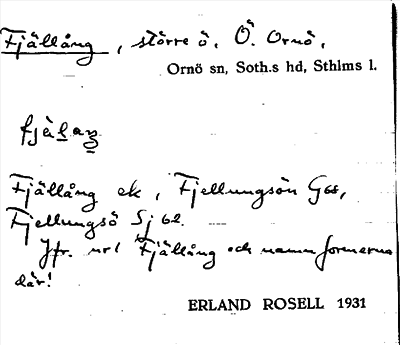 Fjällång, större ö. Ö. Ornö.
Ornö sn, Soth.s hd, Sthlms l.
fjälaŋ
Fjällång ek, Fjellungsön G66,
Fjellungsö Sj 62.
Jfr. nr 1 Fjällång och namnformerna
där!
ERLAND ROSELL 1931